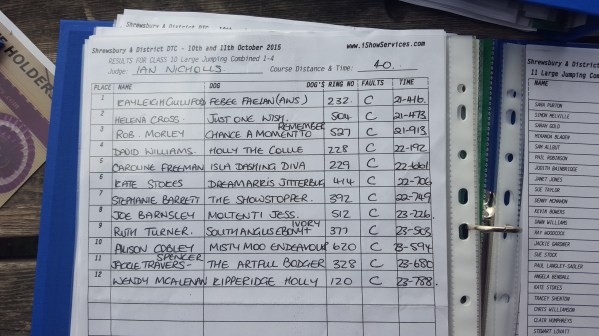 Shrewsbury & District DTC - 10th and 11th October 2015 www.iShowServices.com
RESULTS FOR CLASS 10 Large Jumping Combined 1-4
Judge: IAN NICHOLLS. Course Distance & Time: 40.
PLACE NAME DOG DOG'S RING NO FAULTS TIME
1 KAYLEIGH 232. C 21-416.
2 HELENA CROSS. JUST ONE WISH. 504 C 21-473
3 ROB. MORLEY CHANCE A MOMENT TO REMEMBER 527 C 21-913
4 DAVID WILLIAMS. HOLLY THE COLLIE 228 C 22-192
5 CAROLINE FREEMAN ISLA DASHING DIVA 229 C 22-661
6 KATE STOKES DREAMARRIS JITTERBUG 414 C 22-706
7 STEPHANIE BARRETT THE SHOWSTOPPER. 392 C 22-749
8 JOE BARNSLEY MOLTENTI JESS. 512 C 23-226
9 RUTH TURNER. SOUTHANGUS EBONY IVORY 377 C 23-503
10 ALISON COBLEY MISTY MOO ENDEAVOUR 620 C 23-594
11 JACKIE TRAVERS-SPENCER THE ARTFUL BODGER 328 C 23-680
12 WENDY MCALENAN RIPPERIDGE HOLLY 120 C 23-788
Shrewsbury & District DT
11 Large Jumping Comb
NAME
SARA PURTON
SIMON MELVILLE
SARAH GOLD
MIRANDA BLADEN
SAM ALLOUT
PHIL ROBINSON
JUDITH BAINBRIDGE
JANET JONES
SUE TAYLOR
KEVIN BOWERS
DAWN WILLIAMS
RAY WOODCOCK
JACKIE GARDNER
SUE STOCK
PAUL LANGLEY-SADLER
ANGELA BENDALL
KATE STOKES
TRACEY SHERTON
CHRIS WILLIAMSON
CLAIR HUMPHREYS
STEWART LOVATT
E HOLDERS